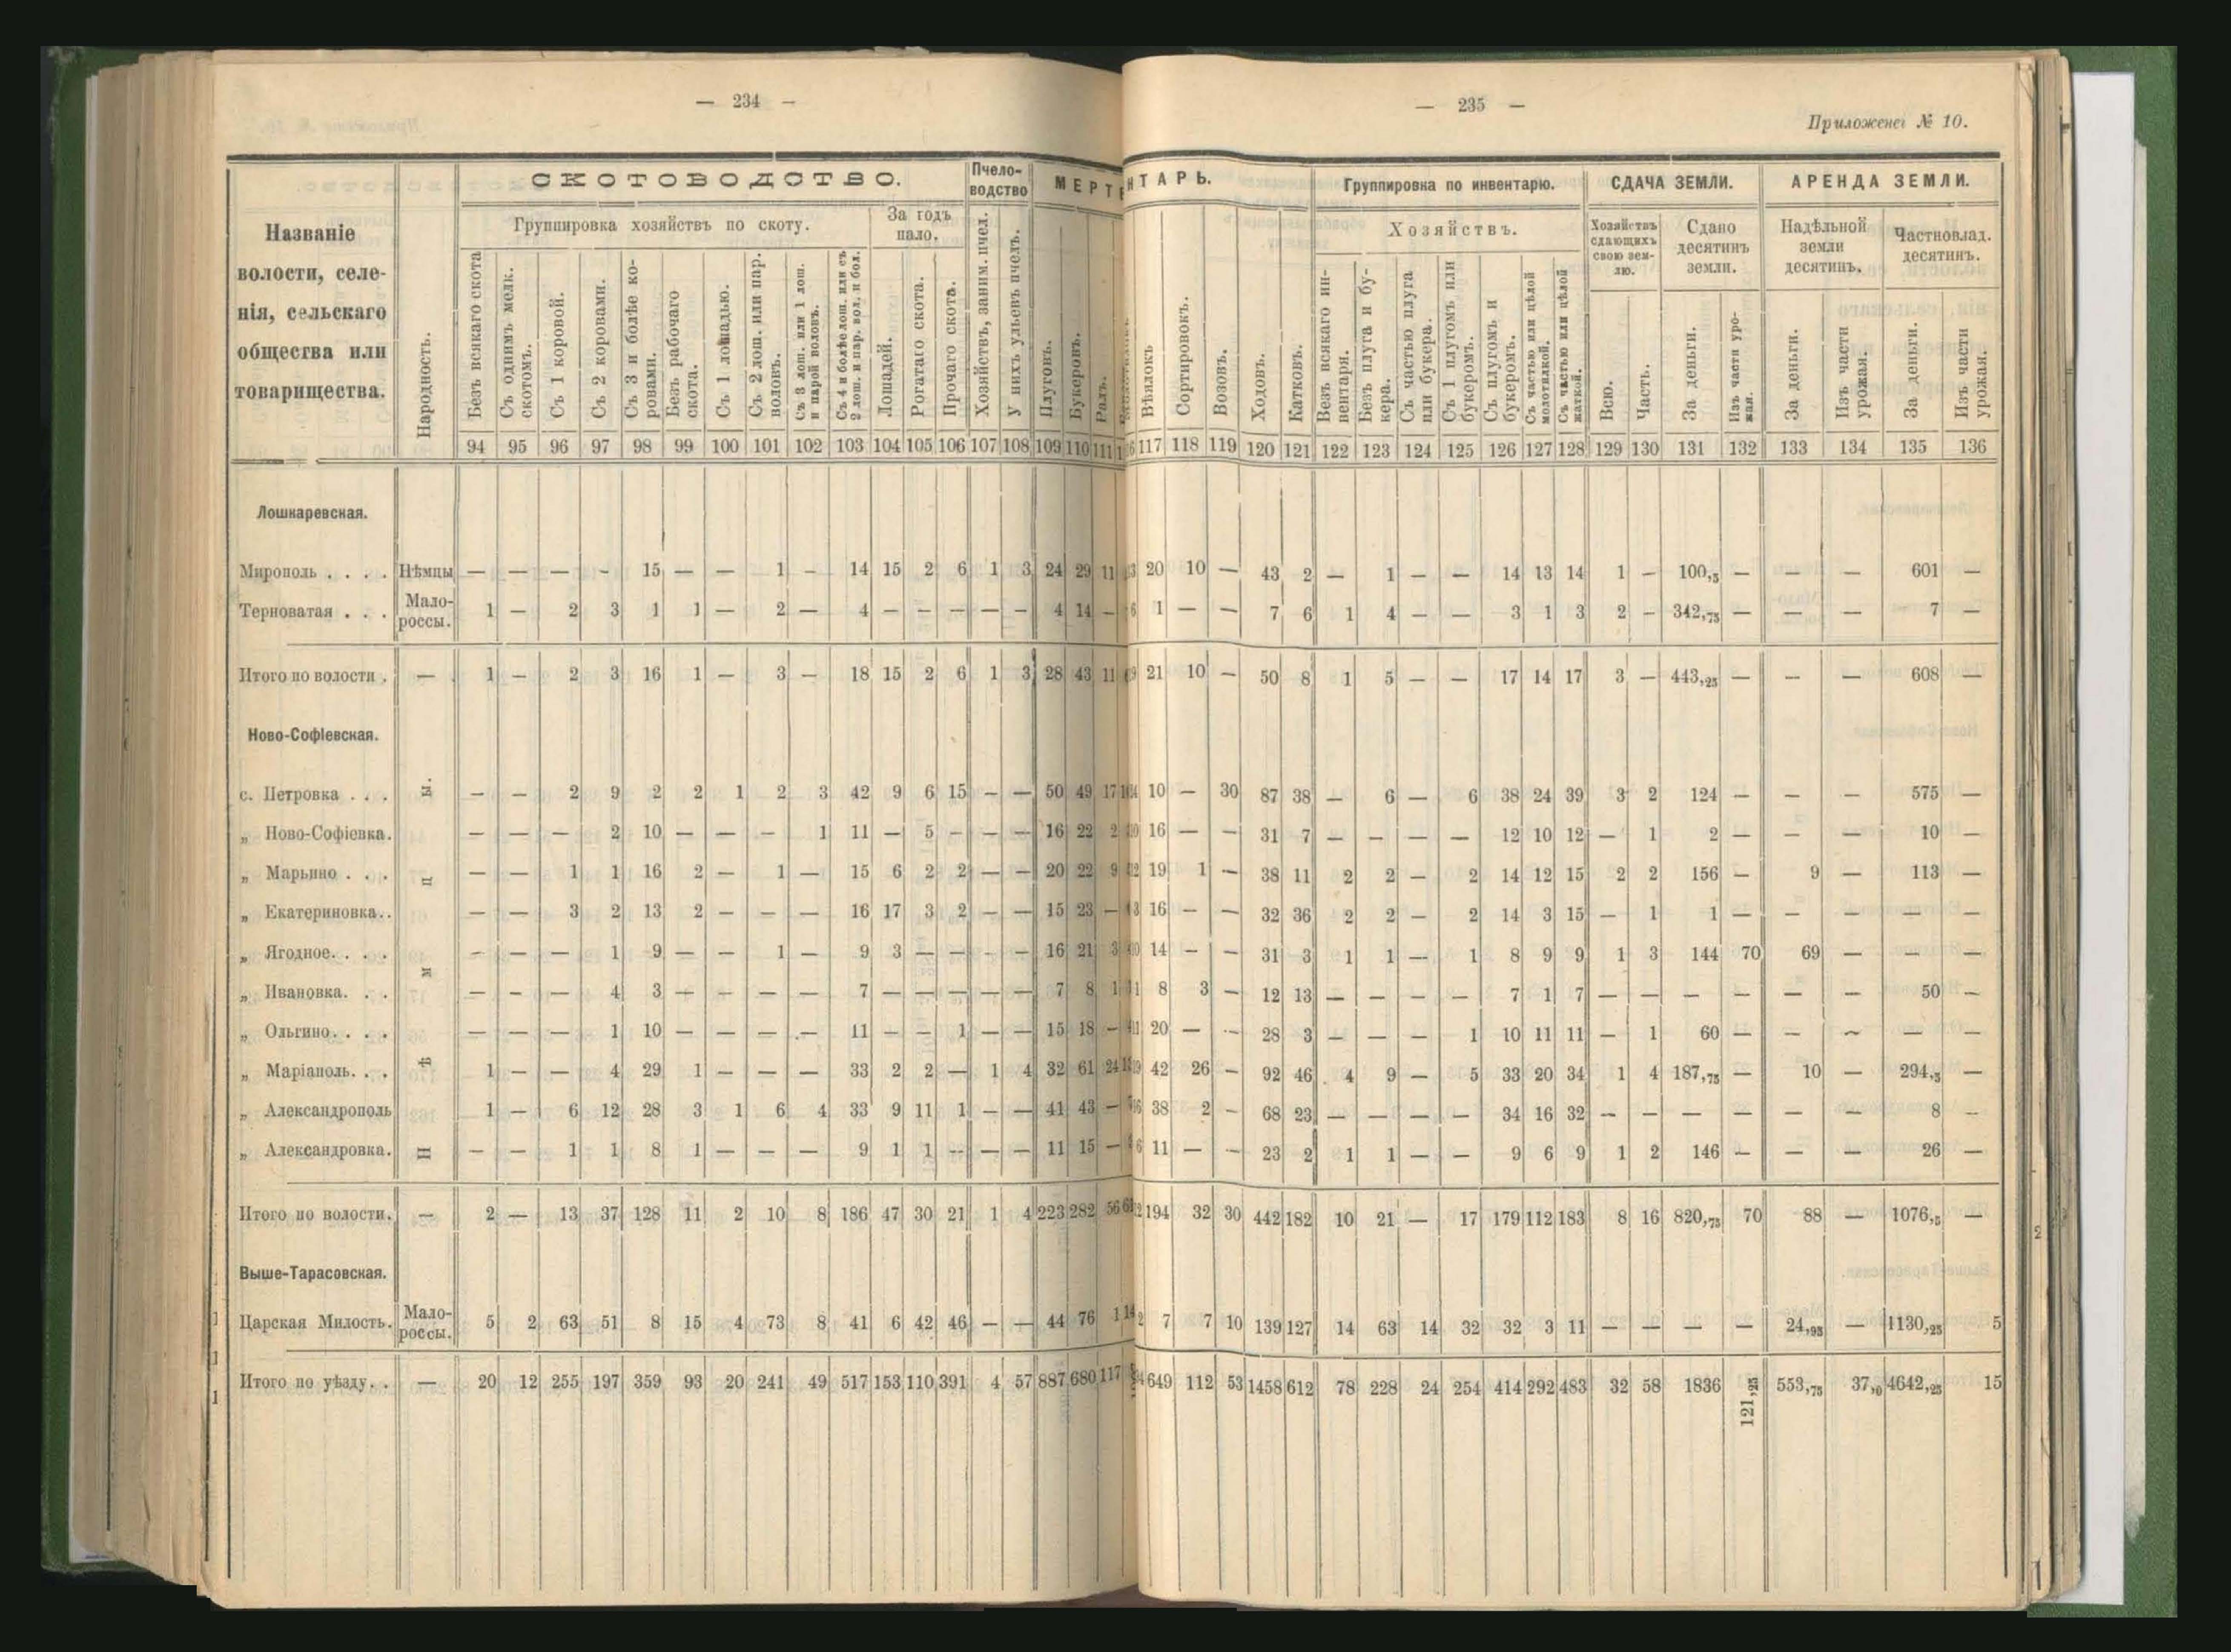 — 234 —
СКОТОВОДСТВО.
Пчело-
водство
МЕРТ
Названіе
волости, селе-
нія, сельскаго
общества или
товарищества.
Народность.
Группировка хозяйствъ по скоту.
За годъ
пало.
Безъ всякаго скота
Съ однимъ мелк.
скотомъ.
Съ 1 коровой.
Съ 2 коровами.
Съ 3 и болѣе ко-
ровами.
Безъ рабочаго
скота.
Съ 1 лошадью.
Съ 2 лош. или пар.
воловъ.
Съ 3 лош. или 1 лош.
и парой воловъ.
Съ 4 и болѣе лош. или съ
2 лош. и пар. вол. и бол.
Лошадей.
Рогатаго скота.
Прочаго скота.
Хозяйствъ, заним. пчел.
У нихъ ульевъ пчелъ.
Плуговъ.
Букеровъ.
Ралъ.
94 95 96 97 98 99 100 101 102 103 104 105 106 107 108 109 110 111
Лошкаревская.
Мирополь . . . . Нѣмцы — — — - 15 — — 1 - 14 15 2 6 1 3 24 29 11
Терноватая . . . Мало-
россы. 1 — 2 3 1 1 — 2 — 4 — — — — — 4 14 —
Итого по волости . — 1 — 2 3 16 1 — 3 — 18 15 2 6 1 3 28 43 11
Ново-Софіевская.
Нѣмцы.
с. Петровка . . . — — 2 9 2 2 1 2 3 42 9 6 15 — — 50 49 17
„ Ново-Софіевка. — — — 2 10 — — — 1 11 — 5 — — — 16 22 2
„ Марьино . . . — — 1 1 16 2 — 1 — 15 6 2 2 — — 20 22 9
„ Екатериновка.. — — 3 2 13 2 — — — 16 17 3 2 — — 15 23 —
„ Ягодное. . . . — — — 1 9 — — 1 — 9 3 — — — — 16 21 3
„ Ивановка. . . — — — 4 3 — — — — 7 — — — — — 7 8 1
„ Ольгино. . . . — — — 1 10 — — — — 11 — — 1 — — 15 18 —
„ Маріаполь. . . 1 — — 4 29 1 — — — 33 2 2 — 1 4 32 61 24
„ Александрополь 1 — 6 12 28 3 1 6 4 33 9 11 1 — — 41 43 —
„ Александровка. — — 1 1 8 1 — — — 9 1 1 — — — 11 15 —
Итого по волости. — 2 — 13 37 128 11 2 10 8 186 47 30 21 1 4 223 282 56
Выше-Тарасовская.
Царская Милость. Мало-
россы. 5 2 63 51 8 15 4 73 8 41 6 42 46 — — 44 76 1
Итого по уѣзду. . — 20 12 255 197 359 93 20 241 49 517 153 110 391 4 57 887 680 117
— 235 —
Приложенеі № 10.
НТАРЬ.
Группировка по инвентарю.
СДАЧА ЗЕМЛИ.
АРЕНДА ЗЕМЛИ.
Хозяйствъ.
Хозяйствъ
сдающихъ
свою зем-
лю.
Сдано
десятинъ
земли.
Надѣльной
земли
десятинъ.
Частновлад.
десятинъ.
Вѣялокъ
Сортировокъ.
Возовъ.
Ходовъ.
Катковъ.
Безъ всякаго ин-
вентаря.
Безъ плуга и бу-
кера.
Съ частью плуга
или букера.
Съ 1 плугомъ или
букеромъ.
Съ плугомъ и
букеромъ.
Съ частью или цѣлой
молотилкой.
Съ частью или цѣлой
жаткой.
Всю.
Часть.
За деньги.
Изъ части уро-
жая.
За деньги.
Изъ части
урожая.
За деньги.
Изъ части
урожая.
117 118 119 120 121 122 123 124 125 126 127 128 129 130 131 132 133 134 135 136
20 10 — 43 2 — 1 — — 14 13 14 1 — 100,5 — — — 601 —
1 — — 7 6 1 4 — — 3 1 3 2 — 342,75 — — — 7 —
21 10 — 50 8 1 5 — — 17 14 17 3 — 443,25 — — — 608 —
10 — 30 87 38 — 6 — 6 38 24 39 3 2 124 — — — 575 —
16 — — 31 7 — — — — 12 10 12 — 1 2 — — — 10 —
19 1 — 38 11 2 2 — 2 14 12 15 2 2 156 — 9 — 113 —
16 — — 32 36 2 2 — 2 14 3 15 — 1 1 — — — — —
14 — — 31 3 1 1 — 1 8 9 9 1 3 144 70 69 — — —
8 3 — 12 13 — — — — 7 1 7 — — — — — — 50 —
20 — — 28 3 — — — 1 10 11 11 — 1 60 — — — — —
42 26 — 92 46 4 9 — 5 33 20 34 1 4 187,75 — 10 — 294,5 —
38 2 — 68 23 — — — — 34 16 32 — — — — — — 8 —
11 — — 23 2 1 1 — — 9 6 9 1 2 146 — — — 26 —
194 32 30 442 182 10 21 — 17 179 112 183 8 16 820,75 70 88 — 1076,5 —
7 7 10 139 127 14 63 14 32 32 3 11 — — — — 24,93 — 1130,25 5
649 112 53 1458 612 78 228 24 254 414 292 483 32 58 1836 121,25 553,75 37,0 4642,25 15